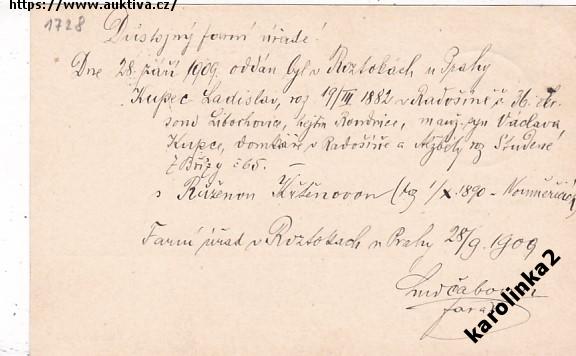 https://www.auktiva.cz/
1728
Důstojný farní úřade!
Dne 28. září 1909 oddán byl v Roztokách u Prahy
Kupec Ladislav, roz 19/III 1882 v Radošíně č 36. okr.
Libochovice, hejtm Roudnice, manž. syn Václava
Kupce, domkáře v Radošíně a Alžběty roz Studené
z Břízy č 65. —
s Růženou Křtěnovou (roz 1/X 1890 -
Farní úřad v Roztokách u Prahy 28/9. 1909
farář
karolinka2